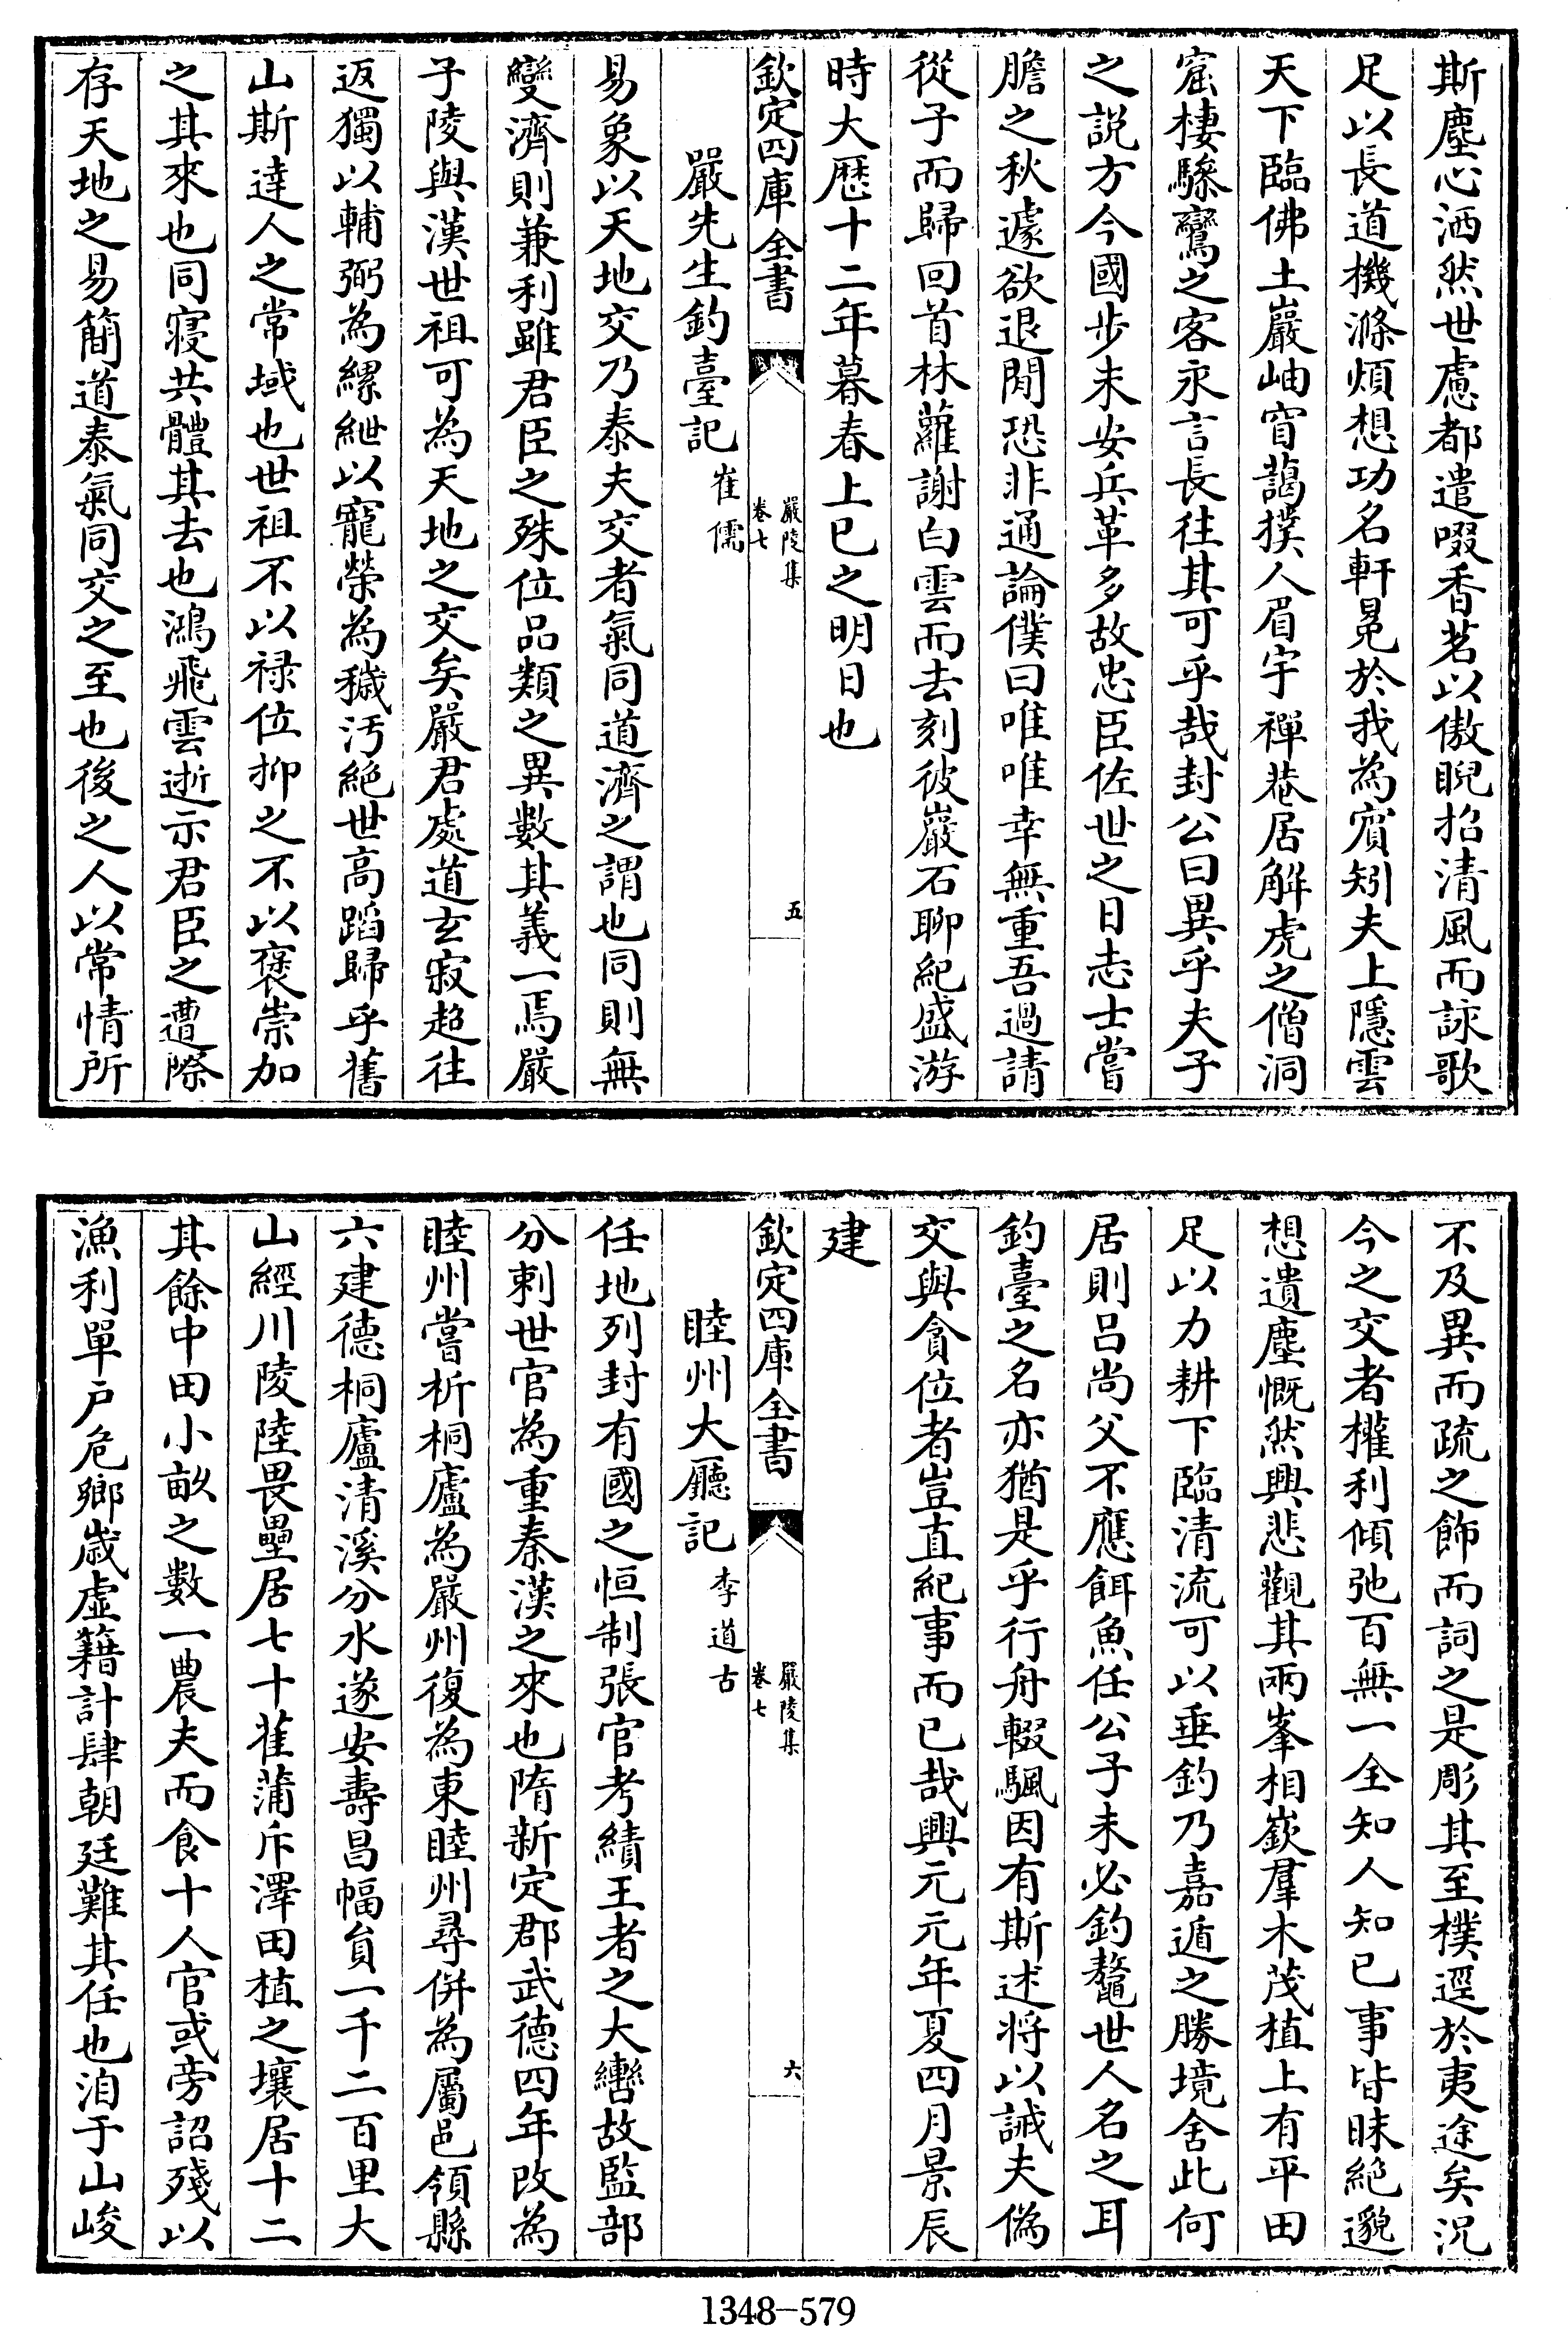 斯塵心洒然世慮都遣啜香茗以傲睨招清風而詠歌
足以長道機滌煩想功名軒冕於我為賓矧夫上隱雲
天下臨佛土巖岫窅藹撲人眉宇禪巷居解虎之僧洞
窟棲驂鸞之客永言長往其可乎哉封公曰異乎夫子
之説方今國步未安兵革多故忠臣佐世之日志士嘗
膽之秋遽欲退閒恐非通論僕曰唯唯幸無重吾過請
從子而歸回首林蘿謝白雲而去刻彼巖石聊紀盛游
時大歴十二年暮春上巳之明日也
欽定四庫全書
嚴陵集
卷七
五
嚴先生釣臺記 崔儒
易象以天地交乃泰夫交者氣同道濟之謂也同則無
變濟則兼利雖君臣之殊位品類之異數其義一焉嚴
子陵與漢世祖可為天地之交矣嚴君處道玄寂超往
返獨以輔弼為縲紲以寵榮為穢汚絶世高蹈歸乎舊
山斯達人之常域也世祖不以禄位抑之不以褒崇加
之其來也同寝共體其去也鴻飛雲逝示君臣之遭際
存天地之易簡道泰氣同交之至也後之人以常情所
不及異而疏之飾而詞之是彫其至樸逕於夷途矣况
今之交者權利傾弛百無一全知人知已事皆昧絶邈
想遺塵慨然興悲觀其兩峯相嶔羣木茂植上有平田
足以力耕下臨清流可以垂釣乃嘉遁之勝境舍此何
居則吕尚父不應餌魚任公子未必釣鼇世人名之耳
釣臺之名亦猶是乎行舟輟颿因有斯述将以誡夫偽
交與貪位者豈直紀事而已哉興元元年夏四月景辰
建
欽定四庫全書
嚴陵集
卷七
六
睦州大廳記 李道古
任地列封有國之恒制張官考績王者之大轡故監部
分刺世官為重秦漢之來也隋新定郡武德四年改為
睦州嘗析桐廬為嚴州復為東睦州尋併為屬邑領縣
六建德桐廬清溪分水遂安壽昌幅員一千二百里大
山經川陵陸畏壘居七十萑蒲斥澤田植之壤居十二
其餘中田小畝之數一農夫而食十人官或旁詔殘以
漁利單戸危鄉歳虚籍計肆朝廷難其任也洎于山峻
1348—579